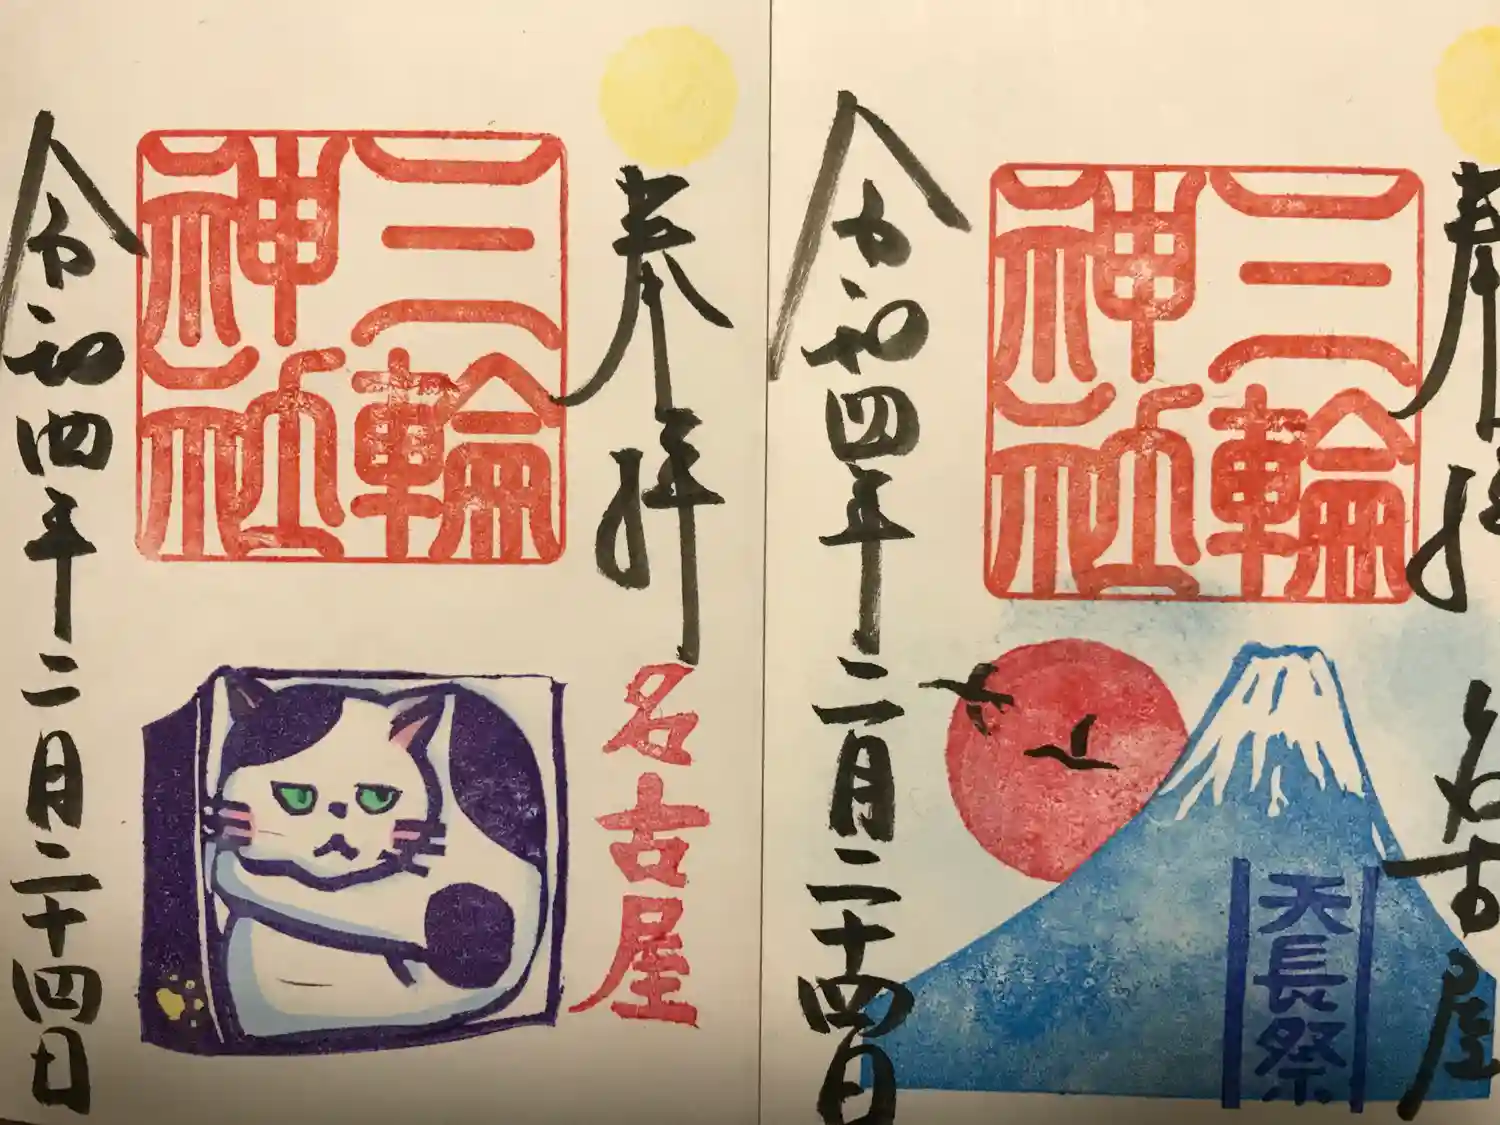 奉拝
名古屋
三輪
神社
令和四年二月二十四日
奉拝
名古屋
三輪
神社
天長祭
令和四年二月二十四日